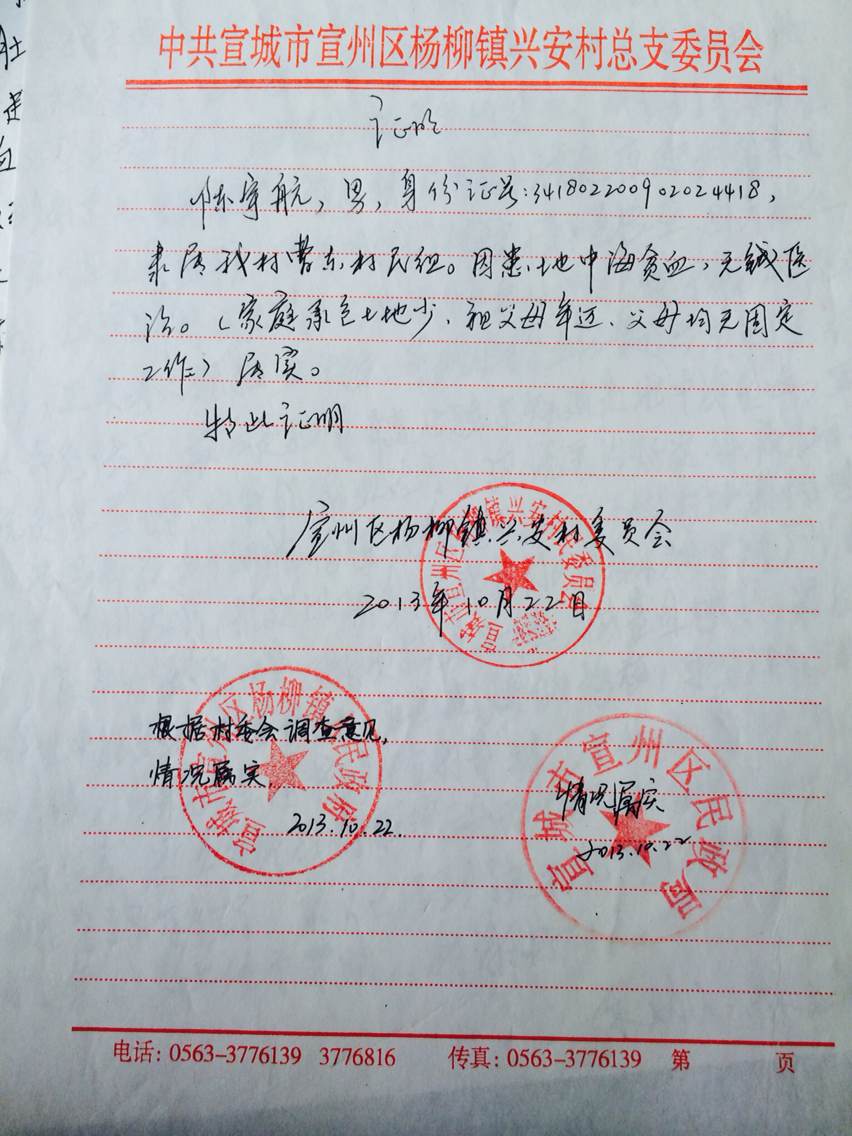 中共宣城市宣州区杨柳镇兴安村总支委员会
证明
陈宇航，男，身份证号：341802200902024418，
隶属我村曹东村民组。因患地中海贫血，无钱医
治。（家庭承包土地少、祖父母年迈、父母均无固定
工作）属实。
特此证明
宣州区杨柳镇兴安村委员会
2013年10月22日
宣城市宣州区杨柳镇兴安村民委员会
根据村委会调查意见，
情况属实。
2013.10.22.
宣城市宣州区杨柳镇人民政府
情况属实
2013.10.22
宣城市宣州区民政局
电话：0563-3776139 3776816 传真：0563-3776139 第 页